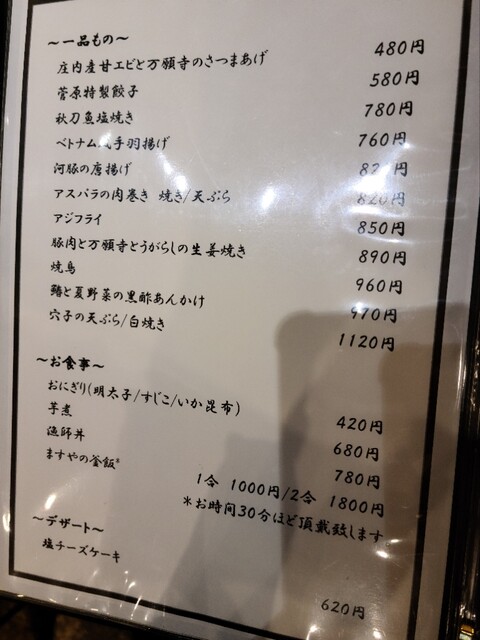 ～一品もの～
庄内産甘エビと万願寺のさつまあげ 480円
菅原特製餃子 580円
秋刀魚塩焼き 780円
ベトナム 手羽揚げ 760円
河豚の唐揚げ 円
アスパラの肉巻き 焼き/天ぷら 820円
アジフライ 850円
豚肉と万願寺とうがらしの生姜焼き 890円
焼鳥 960円
鰆と夏野菜の黒酢あんかけ 970円
穴子の天ぷら/白焼き 1120円
～お食事～
おにぎり(明太子/すじこ/いか昆布) 420円
芋煮 680円
漁師丼 780円
ますやの釜飯* 1合 1000円/2合 1800円
*お時間30分ほど頂戴致します。
～デザート～
塩チーズケーキ 620円